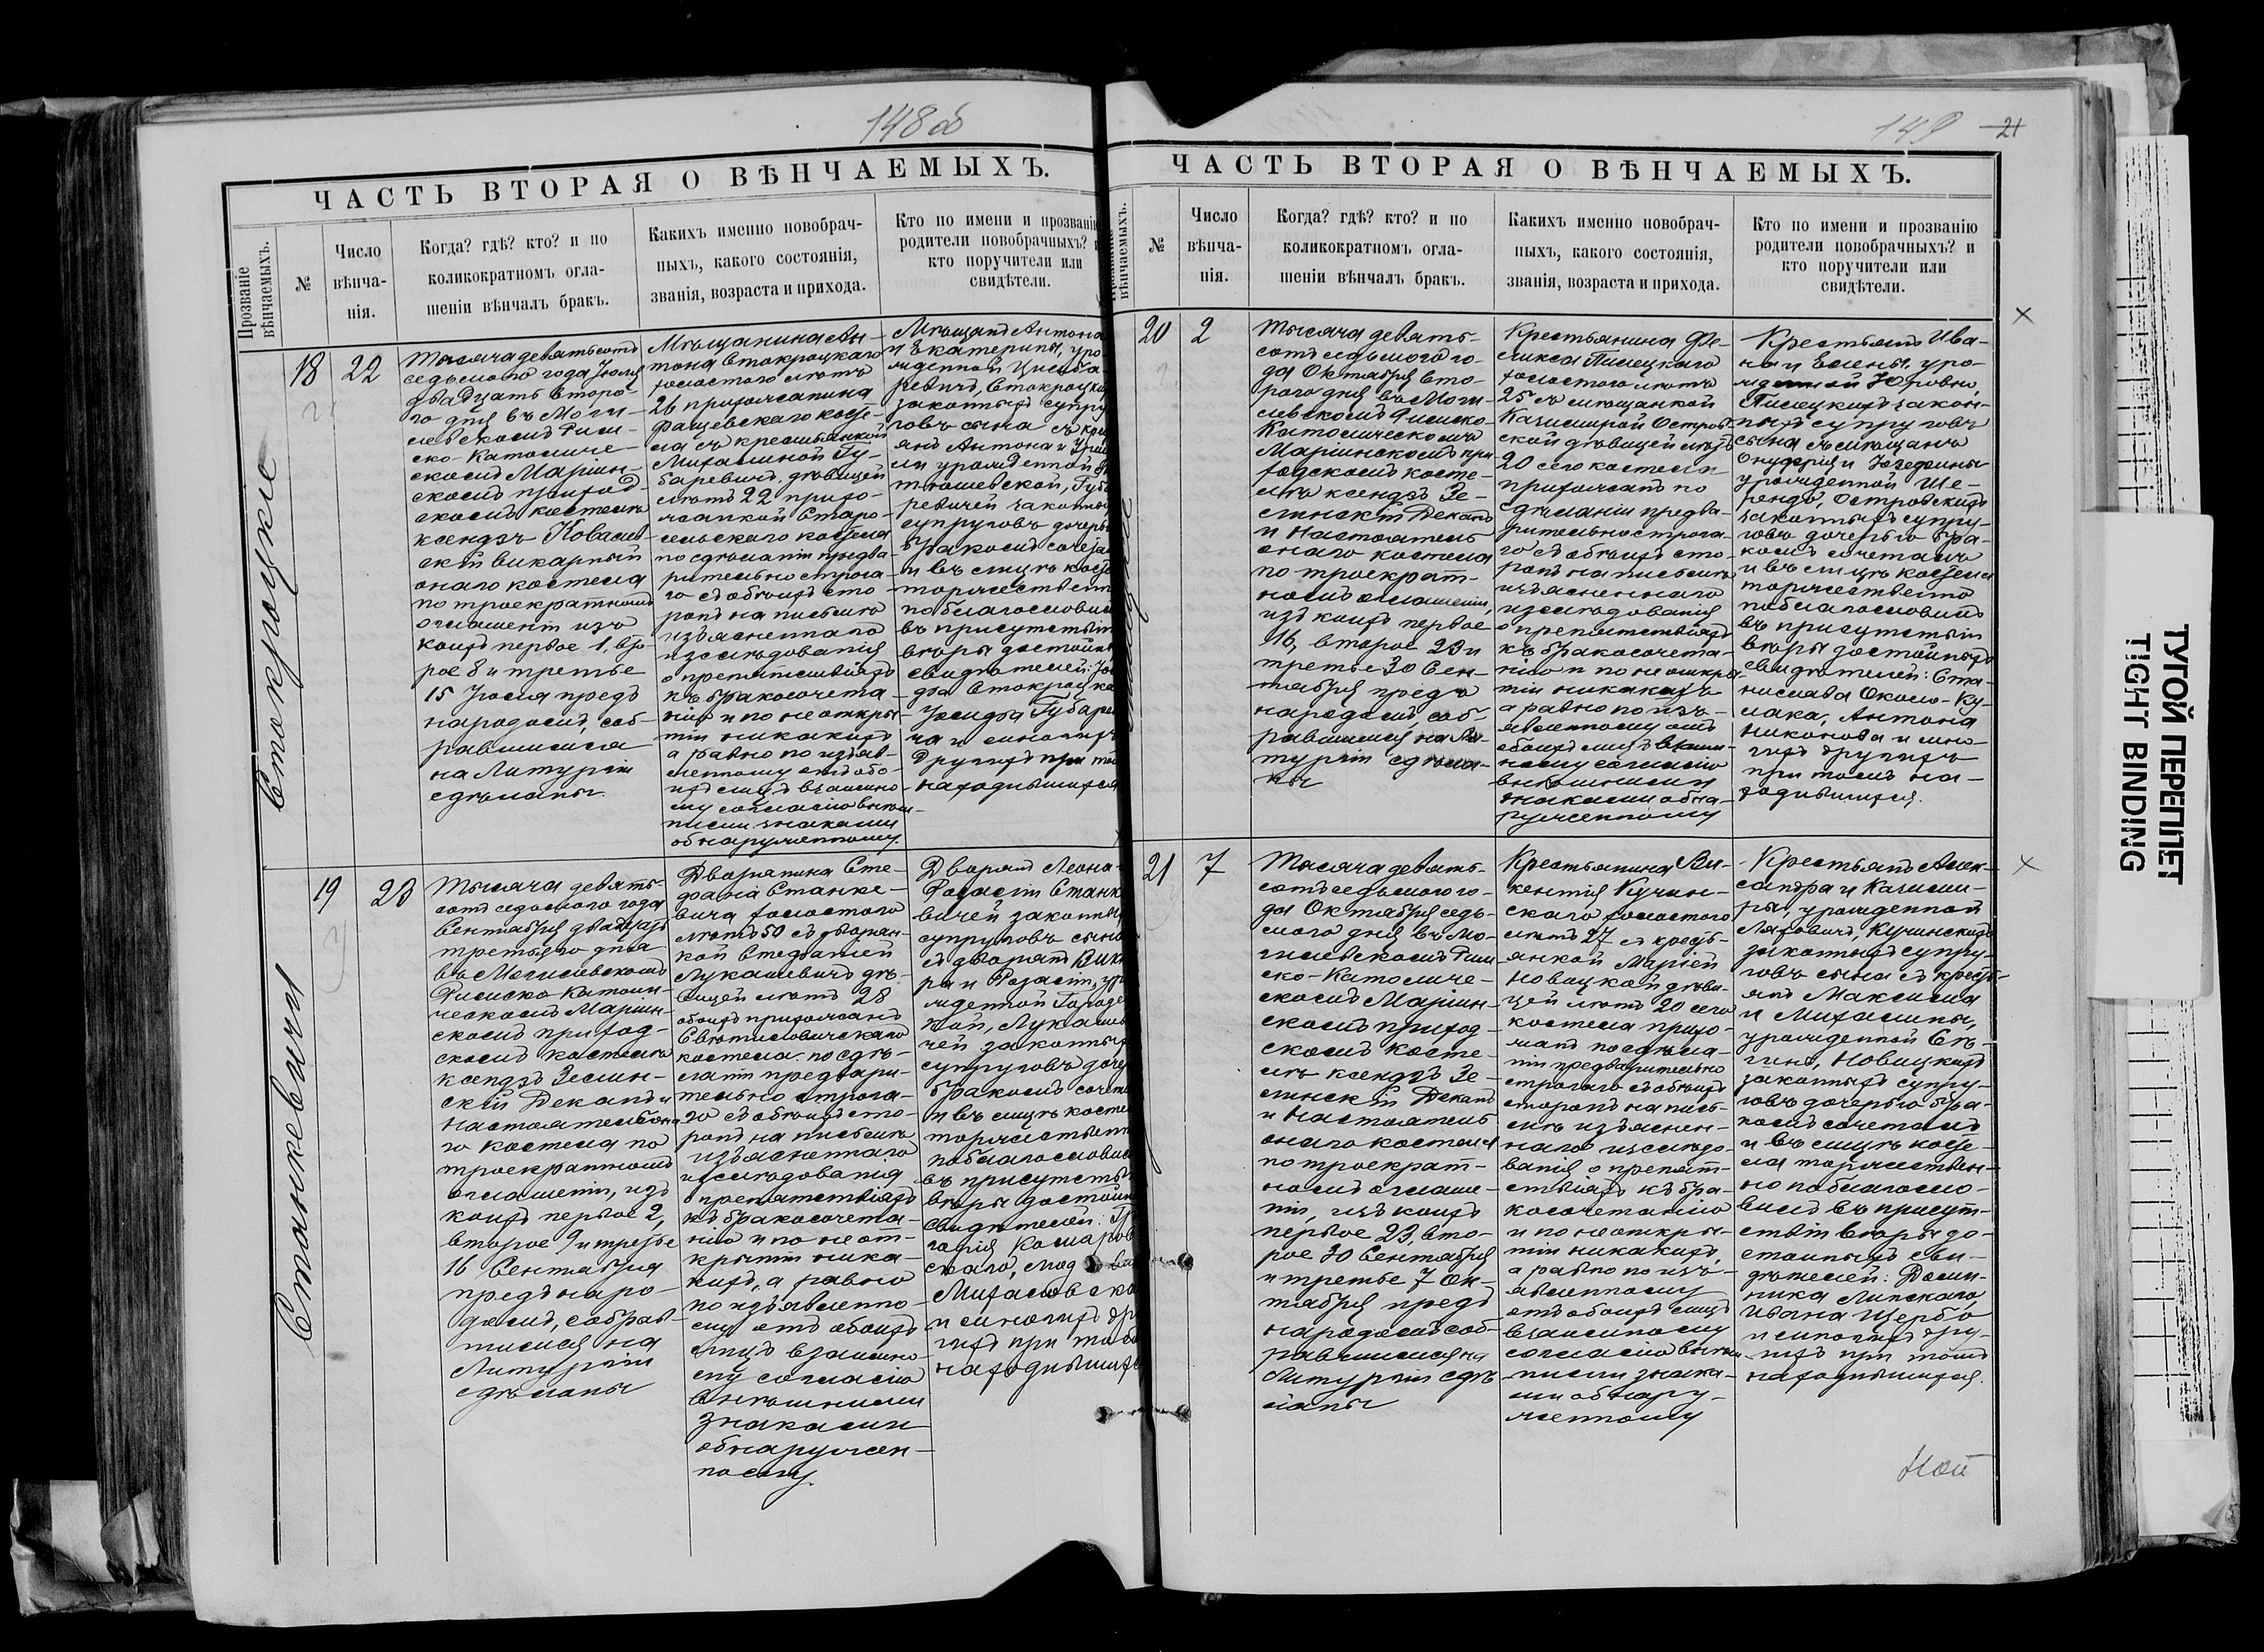 148 об
ЧАСТЬ ВТОРАЯ О ВѢНЧАЕМЫХЪ.
Прозваніе вѣнчаемыхъ.
№
Число
вѣнча-
нія.
Когда? гдѣ? кто? и по
коликократномъ огла-
шеніи вѣнчалъ бракъ.
Каких именно новобрач-
ныхъ, какого состоянія,
званія, возраста и прихода.
Кто по имени и прозванію
родители новобрачныхъ? и
кто поручители или
свидѣтели.
Стокроцкіе
18
22
Тысяча девятьсотъ
седьмого года Іюля
двадцать второ-
го дня въ Моги-
левскомъ Рим-
ско-Католиче-
скомъ Маріин-
скомъ приход-
скомъ костелѣ
ксендзъ Ковалев-
скій викарный
онаго костела
по троекратномъ
оглашеніи изъ
коихъ первое 1, вто-
рое 8 и третье
15 Іюля предъ
народомъ, соб-
равшимся
на Литургіи
сдѣланы
Мѣщанина Ан-
тона Стокроцкаго
холостого лѣтъ
26 прихожанина
Фащевскаго косте-
ла съ крестьянкой
Михалиной Гу-
баревичъ, дѣвицей
лѣтъ 22 прихо-
жанкой Старо-
сельскаго костела
по сдѣланіи предва-
рительно строга-
го съ обѣихъ сто-
ронъ на письмѣ
изъясненнаго
изслѣдованія
о препятствіяхъ
къ бракосочета-
нію и по неоткры-
тіи никакихъ
а равно по изъяв-
ленному отъ обо-
ихъ лицъ взаимно-
му согласію внѣш-
ними знаками
обнаруженному.
Мѣщанъ Антона
и Екатерины, уро-
жденной Цимба-
ревичъ, Стокроцки
законныхъ супру
говъ сына съ кре
янъ Антона и
урожденной
Губа
ревичей законны
супруговъ дочерь
бракомъ сочета
и въ лицѣ косте
торжественн
поблагослови
въ присутствіи
вѣры достойны
свидѣтелей: Іо
фа Стокроцка
Іосифа Губаре
ча и многихъ
другихъ при то
находившихся
Станкевичи
19
23
Тысяча девять-
сотъ седьмого года
Сентября двадцать
третьяго дня
въ Могилевскомъ
Римско-Католи-
ческомъ Маріин-
скомъ приход-
скомъ костелѣ
ксендзъ Зелин-
скій Деканъ и
настоятель она-
го костела по
троекратномъ
оглашеніи, изъ
коихъ первое 2,
второе 9 и третье
16 Сентября
предъ наро-
домъ, собрав-
шимся на
Литургіи
сдѣланы
Дворянина Сте-
фана Станке-
вича холостого
лѣтъ 50 съ дворян-
кой Стефаніей
Лукашевичъ дѣ-
вицей лѣтъ 28
обоихъ прихожанъ
Святиловичскаго
костела по сдѣ-
ланіи предвари-
тельно строга-
го съ обѣихъ сто-
ронъ на письмѣ
изъясненнаго
изслѣдованія
о препятствіяхъ
къ бракосочета-
нію и по неот-
крытіи ника-
кихъ, а равно
по изъявленно-
му отъ обоихъ
лицъ взаимно-
му согласію
внѣшними
знаками
обнаружен-
ному.
Дворянъ Леона-
Розаліи Станк
вичей законны
супруговъ сына
съ дворянъ Вик
ра и Розаліи, ур
жденной Городе
кой, Лукашев
чей законны
супруговъ доче
бракомъ сочета
и въ лицѣ косте
торжественн
поблагослови
въ присутстві
вѣры достойн
свидѣтелей: Гр
горія Комаров
скаго,
Михаловска
и многихъ др
гихъ при том
находившихс
149 21
ЧАСТЬ ВТОРАЯ О ВѢНЧАЕМЫХЪ.
вѣнчаемыхъ.
№
Число
вѣнча-
нія.
Когда? гдѣ? кто? и по
коликократномъ огла-
шеніи вѣнчалъ бракъ.
Каких именно новобрач-
ныхъ, какого состоянія,
званія, возраста и прихода.
Кто по имени и прозванію
родители новобрачныхъ? и
кто поручители или
свидѣтели.
20
2
Тысяча девять-
сотъ седьмого го-
да Октября вто-
рого дня въ Моги-
левскомъ Римско-
Католическомъ
Маріинскомъ при-
ходскомъ косте-
лѣ ксендзъ Зе-
линскій Деканъ
и настоятель
онаго костела
по троекрат-
номъ оглашеніи,
изъ коихъ первое
16, второе 23 и
третье 30 Сен-
тября предъ
народомъ, соб-
равшимся на Ли-
тургіи сдѣла-
ны
Крестьянина Фе-
ликса Пилецкаго
холостого лѣтъ
25 съ мѣщанкой
Казимирой Островской
дѣвицей лѣтъ
20 сего костела
прихожанъ по
сдѣланіи предва-
рительно строга-
го съ обѣихъ сто-
ронъ на письмѣ
изъясненнаго
изслѣдованія
о препятствіяхъ
къ бракосочета-
нію и по неоткры-
тіи никакихъ
а равно по изъ-
явленному отъ
обоихъ лицъ взаим-
ному согласію
внѣшними
знаками обна-
руженному
Крестьянъ Ива-
на и Елены, уро-
жденной Юровно,
Пилецкихъ закон-
ныхъ супруговъ
сына съ мѣщанъ
Онуфрія и Юзефины
урожденной Ше-
рендо, Островскихъ
законныхъ супру-
говъ дочерью бра-
комъ сочеталъ
и въ лицѣ костела
торжественно
поблагословилъ
въ присутствіи
вѣры достойныхъ
свидѣтелей: Ста-
нислава Около-Ку-
лака, Антона
Никонова и мно-
гихъ другихъ
при томъ на-
ходившихся.
21
7
Тысяча девять-
сотъ седьмого го-
да Октября седь-
мого дня въ Мо-
гилевскомъ Рим
ско-Католиче-
скомъ Маріин-
скомъ приход-
скомъ косте-
лѣ ксендзъ Зе-
линскій Деканъ
и настоятель
онаго костела
по троекрат-
номъ оглаше-
ніи, изъ коихъ
первое 23, вто-
рое 30 Сентября
и третье 7 Ок-
тября предъ
народомъ соб-
равшимся на
Литургіи сдѣ
ланы
Крестьянина Ви-
кентія Кучин-
скаго холостого
лѣтъ 27 съ кресть-
янкой Маріей
Новацкой дѣви-
цей лѣтъ 20 сего
костела прихо-
жанъ по сдѣла-
ніи предварительно
строгаго съ обѣихъ
сторонъ на пись-
мѣ изъяснен-
наго изслѣдо-
ванія о препят-
ствіяхъ къ бра-
косочетанію
и по неоткры-
тіи никакихъ,
а равно по изъ-
явленному
отъ обоихъ лицъ
взаимному
согласію внѣш-
ними знака-
ми обнару-
женному
Крестьянъ Алек-
сандра и Казими-
ры, урожденной
Ляховичъ, Кучинскихъ
законныхъ супру-
говъ сына съ кресть-
янъ Максима
и Михалины,
урожденной Сѣ-
гино, Новацкихъ
законныхъ супру-
говъ дочерью бра-
комъ сочеталъ
и въ лицѣ косте-
ла торжествен-
но поблагосло-
вилъ въ присут-
ствіи вѣры до-
стойныхъ сви-
дѣтелей: Доми-
ника Липскаго,
Ивана Щербо
и многихъ дру-
гихъ при томъ
находившихся.
ТУГОЙ ПЕРЕПЛЕТ
TIGHT BINDING